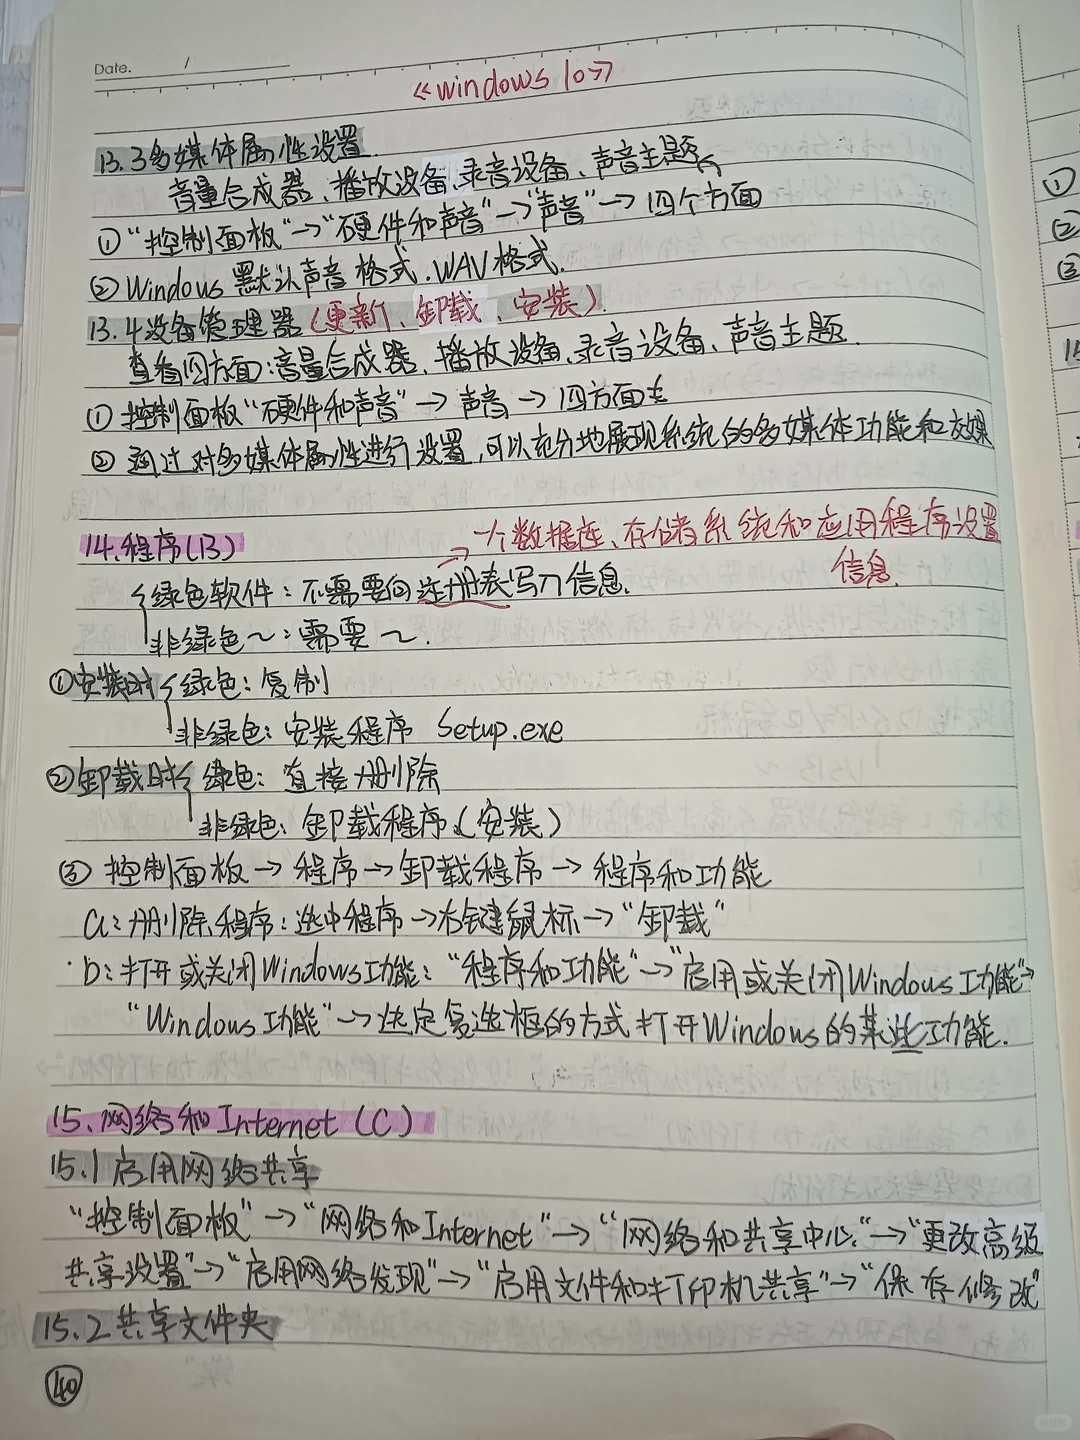 Date. /
《windows 10》
13.3多媒体属性设置
音量合成器、播放设备、录音设备、声音主题
①“控制面板”→“硬件和声音”→“声音”→四个方面
②Windows默认声音格式.WAV格式.
13.4设备管理器(更新、卸载、安装).
查看四方面:音量合成器、播放设备、录音设备、声音主题.
①控制面板“硬件和声音”→声音→四方面
②通过对多媒体属性进行设置,可以充分地展现系统的多媒体功能和
14.程序(B)
→一个数据库、存储系统和应用程序设置
信息.
绿色软件:不需要向注册表写入信息.
非绿色～:需要～.
①安装时 绿色:复制
非绿色:安装程序 Setup.exe
②卸载时 绿色:直接删除
非绿色:卸载程序(安装)
③控制面板→程序→卸载程序→程序和功能
a:删除程序:选中程序→右键鼠标→“卸载”
b:打开或关闭Windows功能:“程序和功能”→“启用或关闭Windows功能”→
“Windows功能”→选定复选框的方式打开Windows的某些功能.
15.网络和Internet(C)
15.1启用网络共享
“控制面板”→“网络和Internet”→“网络和共享中心”→“更改高级
共享设置”→“启用网络发现”→“启用文件和打印机共享”→“保存修改”
15.2共享文件夹
40